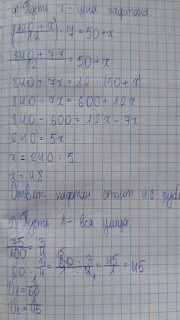 1) Пусть x - цена кафтана
(120 + x)/12 · 7 = 50 + x
840 + 7x/12 = 50 + x
840 + 7x = 12 (50 + x)
840 + 7x = 600 + 12x
840 - 600 = 12x - 7x
240 = 5x
x = 240 : 5
x = 48
Ответ: кафтан стоит 48
2) Пусть 1 - вся улица
75/100 = 3/4
60 · 3/4 = 60 · 3/4 = 45/1 = 45
V₁ = 1/60
V₂ = 1/45